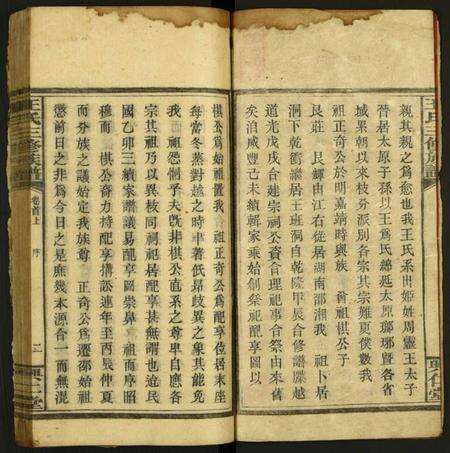 親其親之為愈也我王氏系出姬姓周靈王太子
晉居太原子孫以王為氏綿延太原瑯琊暨各省
城累朝以來枝分派別各宗其宗難更僕數我
祖正奇公於明嘉靖時與族 翁祖棋公子
艮莊 艮輝由江右從居湖南邵湘我 祖卜居
洞下乾衝濬居王班洞自乾隆甲辰合修譜牒越
道光戊戌合建宗祠公資合理祀事合祭由來舊
矣洎咸豐己未續輯家乘始創祭祀配享圖以
棋公為始祖置我 祖正奇公為配享位居末座
每當冬蒸對越之時聿著低昂歧異之象其能免
我 祖怨恫乎夫既非棋公直系之尊卑自應各
宗其祖乃以異枝同祠祀居配享甚無謂也迨民
國乙卯三續家譜議易配享圖崇鼻 祖而序昭
穆而 棋公裔力持配享搆訟連年至丙辰仲夏
而分族之議始定我族尊 正奇公為遷邵始祖
懲前日之非為今日之是庶幾本源合一而無混
王氏三修族譜
卷首上 序
二